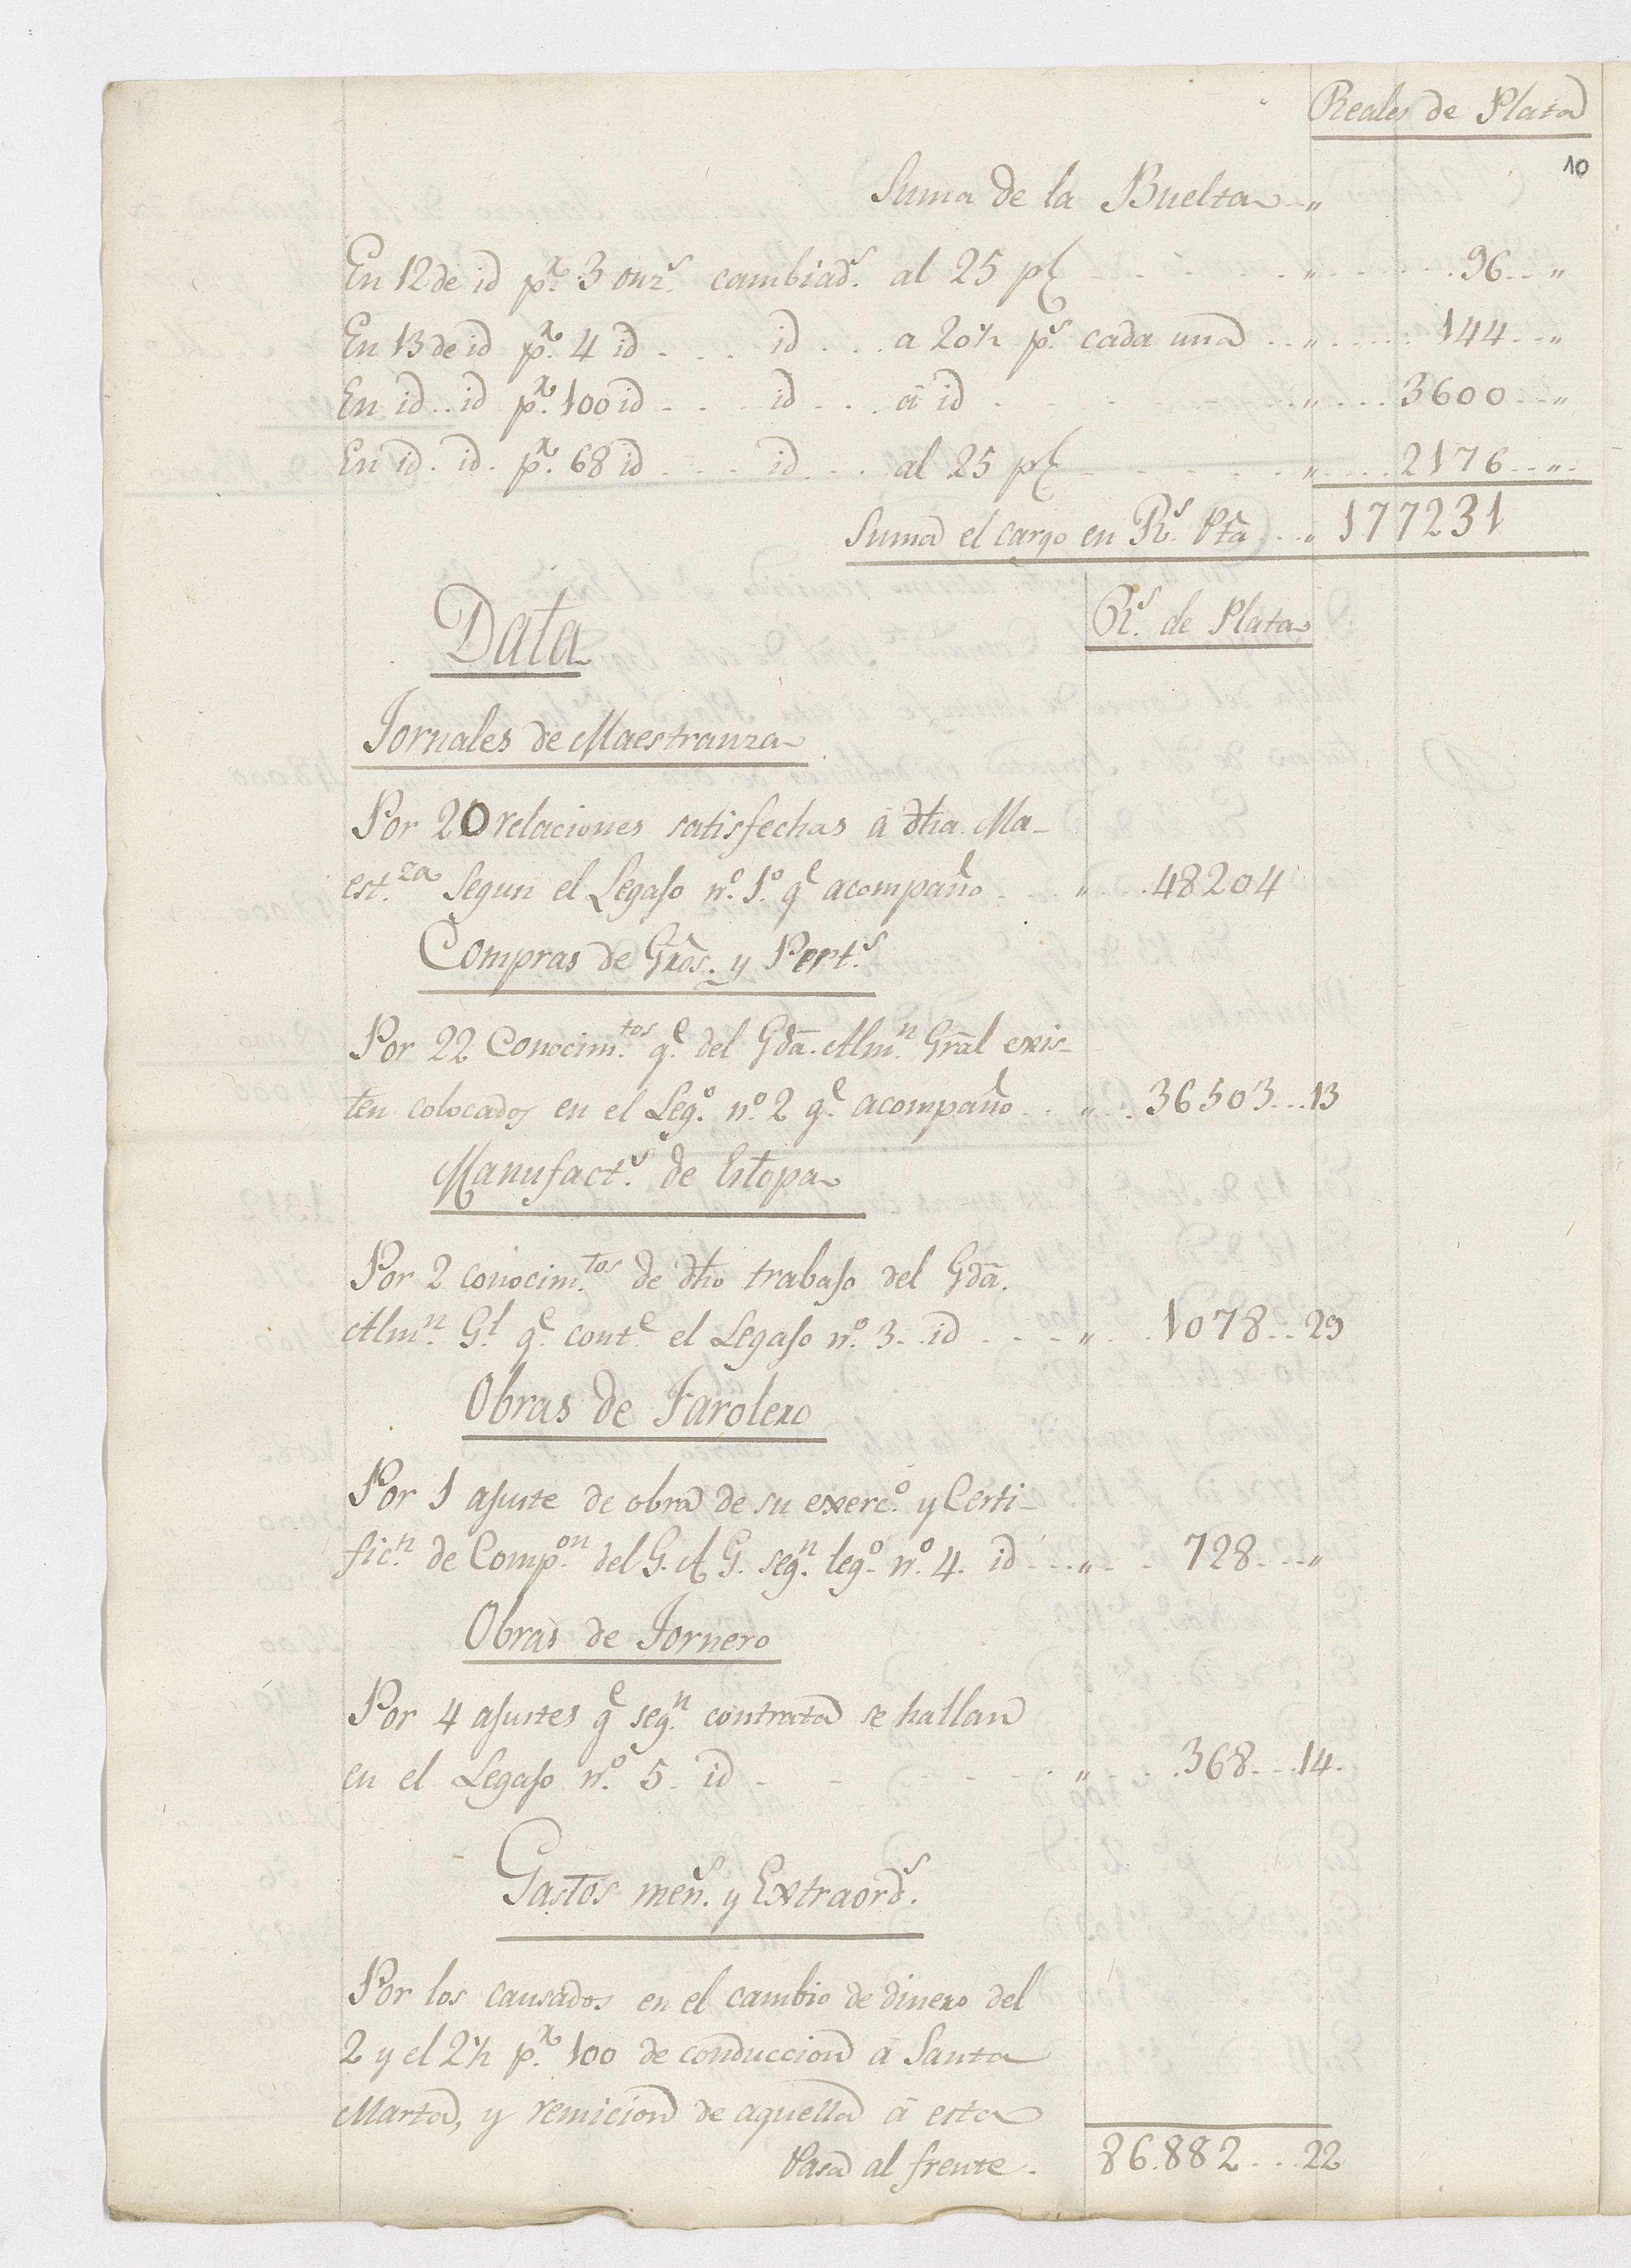 Reales de Plata
10
Suma de la Buelta „
En 12 de id pr. 3 onzs. cambiads. al 25 p% „ 96 „
En 13 de id pr. 4 id id a 20½ ps. cada una „ 144 „
En id id pr. 100 id id â id „ 3600 „
En id. id. pr. 68 id id al 25 p% „ 2176 „
Suma el cargo en Rs. Pta „ 177231
Data
Rs. de Plata
Jornales de Maestranza
Por 20 relaciones satisfechas â dha. Ma-
est.za Segun el Legajo no. 1o. qe acompaño „ 48204
Compras de Gros. y Perts.
Por 22 Conocim.tos qe. del Gda. Almn. Gral exis-
ten colocados en el Lego. no. 2 qe. acompaño „ 36503 13
Manufacts. de Estopa
Por 2 conocim.tos de dho trabajo del Gda.
Almn. Gl. qe. conte. el Legajo no. 3. id „ 1078 29
Obras de Farolero
Por 1 ajuste de obra de su exerco. y Certi-
ficn. de Compon. del G. A. G. segn. lego. no. 4. id „ 728 „
Obras de Tornero
Por 4 ajustes qe segn. contrata se hallan
en el Legajo no. 5. id „ 368 14.
Gastos mens. y Extraords.
Por los causados en el cambio de dinero del
2 y el 2½ pr. 100 de conduccion â Santa
Marta, y remicion de aquella â esta
Pasa al frente. 86.882 22